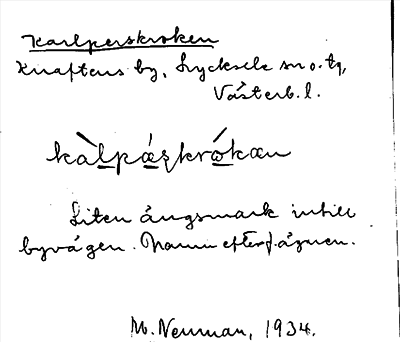 Karlperskroken
Knaftens by, Lycksele sn o. tg,
Västerb. l.
kàlpáʂkrókæn
Liten ängsmark intill
byvägen. Namn efter f. ägnen.
M. Neuman, 1934.